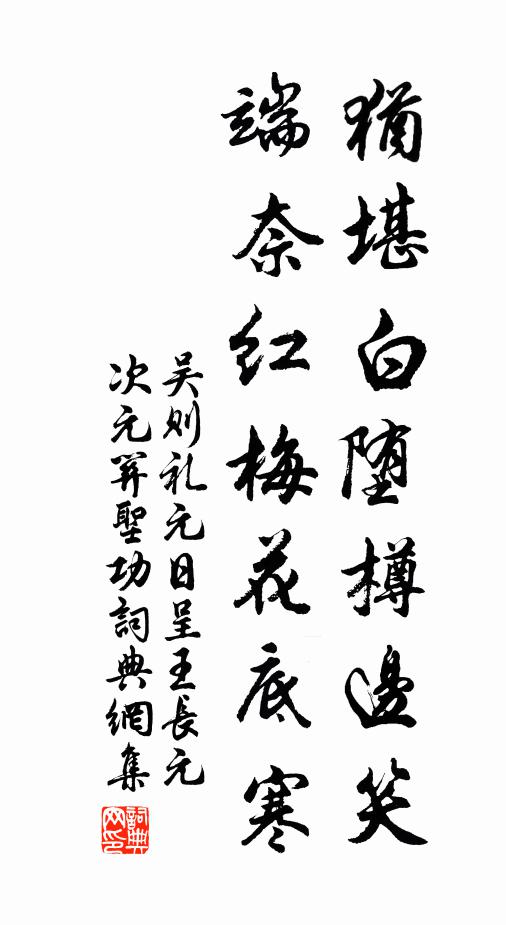 猶堪白墮樽邊笑
端奈紅梅花底寒
吴则礼元日呈王長元
次元并聖功詞典網集
詞典網印